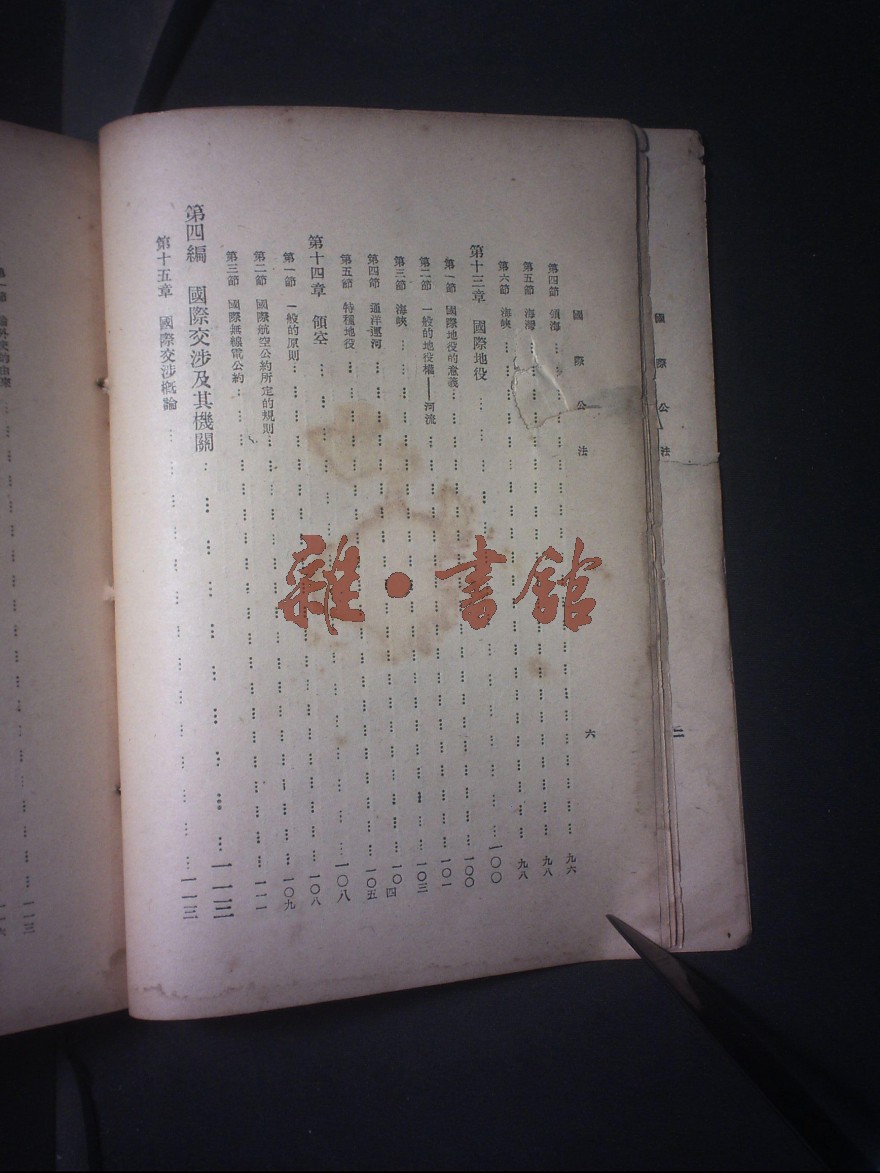 國際公法 二
國際公法 六
第四節 領海………九六
第五節 海灣………九八
第六節 海峽………九八
第十三章 國際地役………一〇〇
第一節 國際地役的意義………一〇〇
第二節 一般的地役權——河流………一〇一
第三節 海峽………一〇三
第四節 通洋運河………一〇四
第五節 特種地役………一〇五
第十四章 領空………一〇八
第一節 一般的原則………一〇八
第二節 國際航空公約所定的規則………一〇九
第三節 國際無線電公約………一一一
第四編 國際交涉及其機關………一一三
第十五章 國際交涉概論………一一三
第一節 論外交的由來………一一三
雜·書館